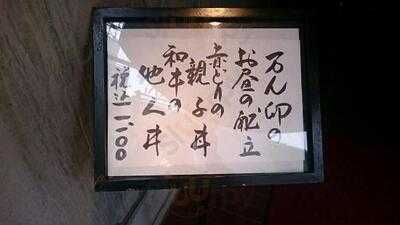 万ん卯の
お昼の献立
赤どりの
親子丼
和牛の
他人丼
税込一、一〇〇